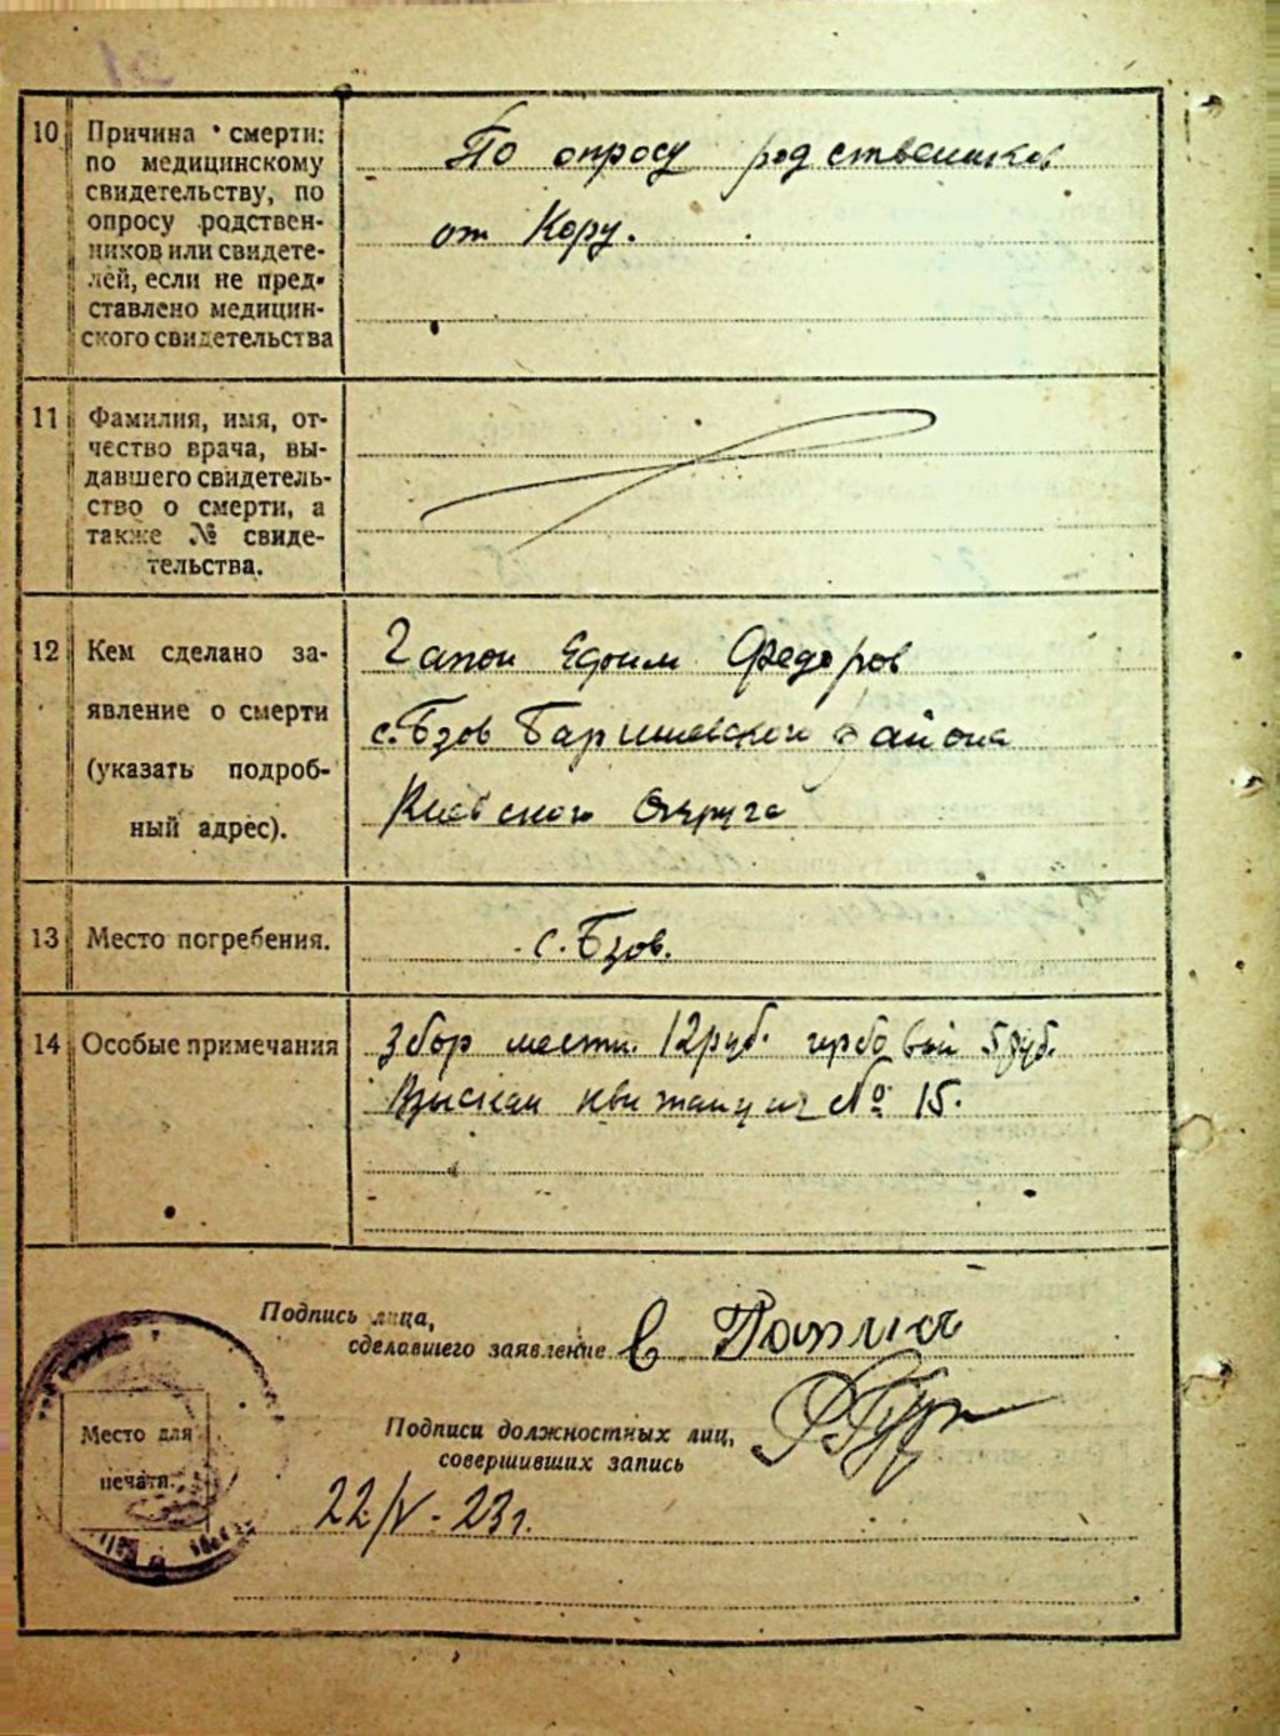 10 Причина смерти:
по медицинскому
свидетельству, по
опросу родствен-
ников или свидете-
лей, если не пред-
ставлено медицин-
ского свидетельства
По опросу родствеников
от Кору.
11 Фамилия, имя, от-
чество врача, вы-
давшего свидетель-
ство о смерти, а
также № свиде-
тельства.
12 Кем сделано за-
явление о смерти
(указать подроб-
ный адрес).
Гапон Ефим Федоров
с. Бзов Баришевского района
Киевского Округа
13 Место погребения.
с. Бзов.
14 Особые примечания
Збор местн. 12 руб. гербовый 5 руб.
Взыскан квитанция № 15.
Подпись лица,
сделавшего заявление
Подписи должностных лиц,
совершивших запись
Место для
печати.
22/V - 23 г.